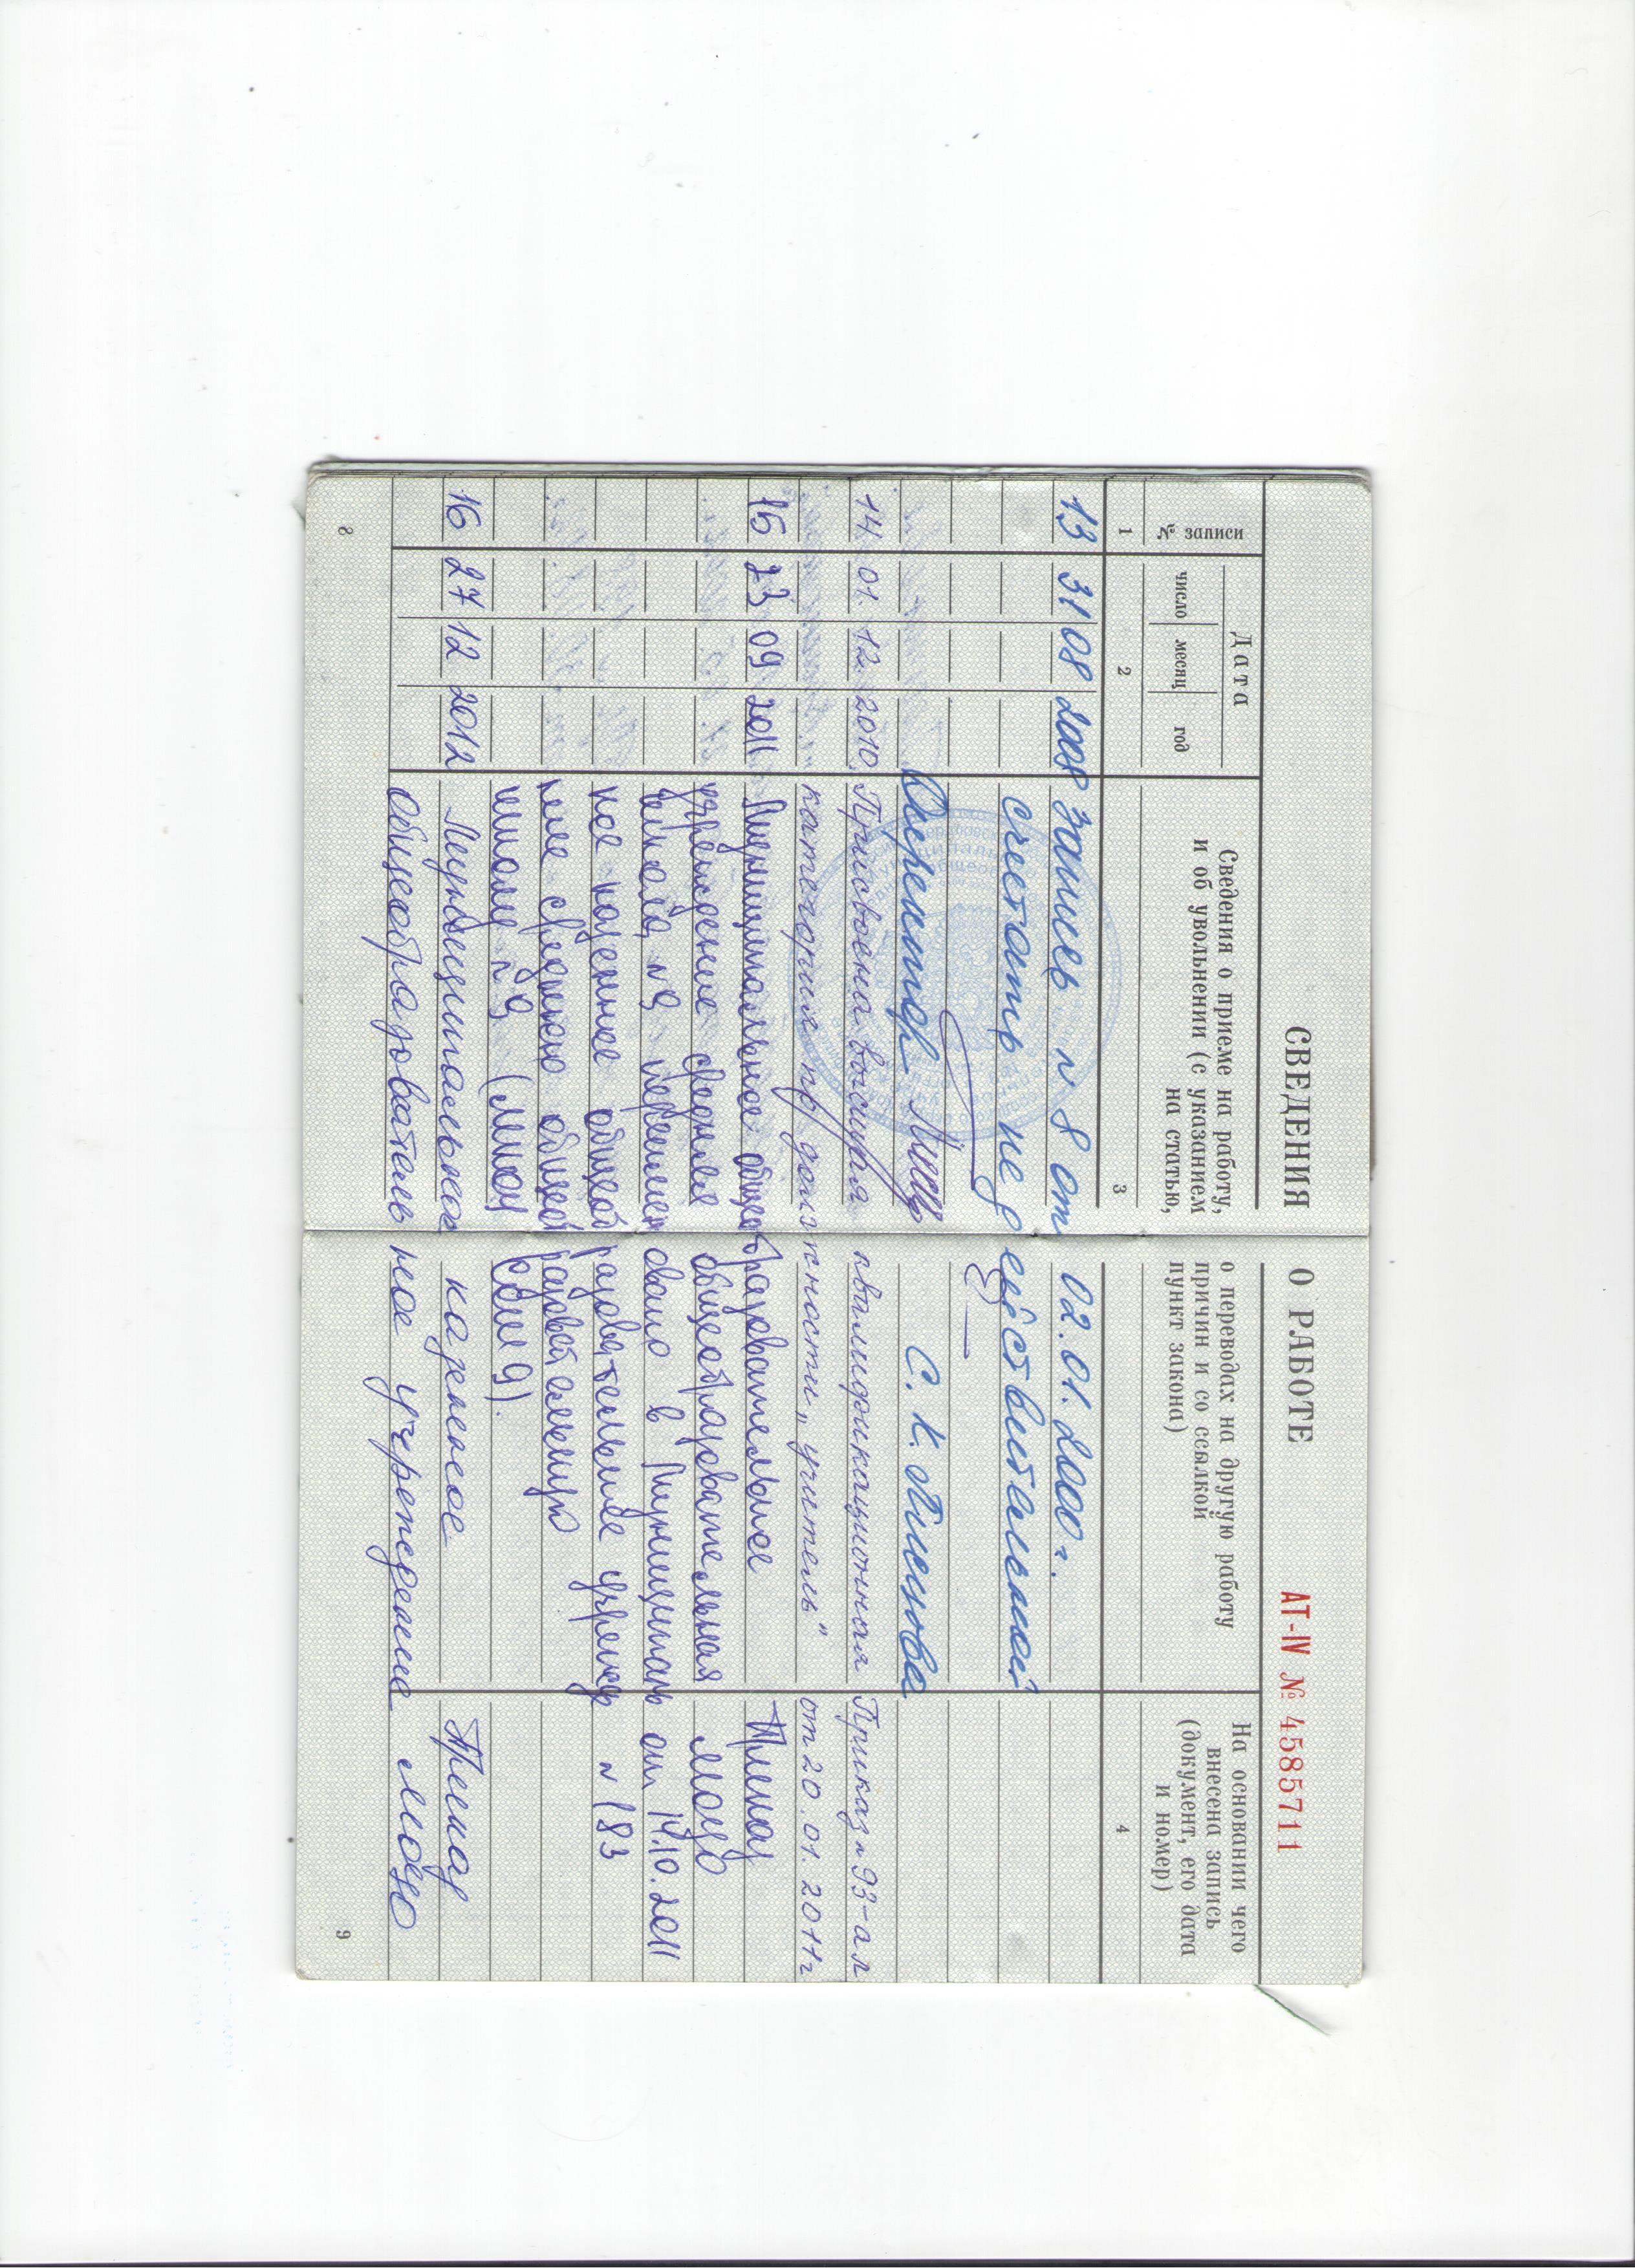 СВЕДЕНИЯ О РАБОТЕ АТ-IV № 4585711
№ записи
Дата
число месяц год
Сведения о приеме на работу, о переводах на другую работу
и об увольнении (с указанием причин и со ссылкой
на статью, пункт закона)
На основании чего
внесена запись
(документ, его дата
и номер)
1 2 3 4
13 31 08 2008 Запись № 8 от 02.01.2000 г.
считать не действительной
Директор С. К.
14 01. 12. 2010. Присвоена высшая квалификационная Приказ № 93-ал
категория по должности „учитель" от 20.01.2011г
15 23 09 2011 Муниципальное общеобразовательное Приказ
учреждение средняя общеобразовательная МОУО
школа №9 переименовано в Муниципаль от 14.10.2011
ное казенное общеобразовательное учрежде № 183
ние среднюю общеобразовательную
школу №9 (МКОУ СОШ 9).
16 27 12 2012 Муниципальное казенное Приказ
общеобразовательное учреждение МОУО
8 9